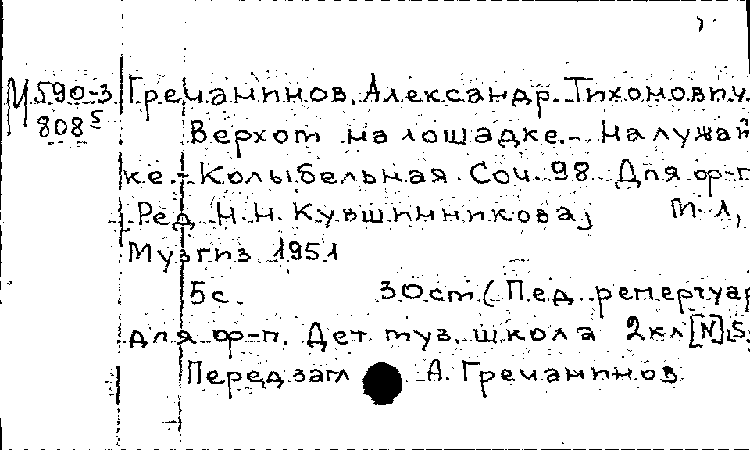 М 590-3 Гречанинов, Александр Тихонович
808⁵ Верхом на лошадке. - На лужай
ке. - Колыбельная. Соч. 98. Для ф-п
Ред. Н. Н. Кувшинникова] М. Л,
Музгиз 1951
5 с. 30 cm (Пед. репертуар
для ф-п. Дет. муз. школа 2 кл [N]
Перед загл А. Гречанинов